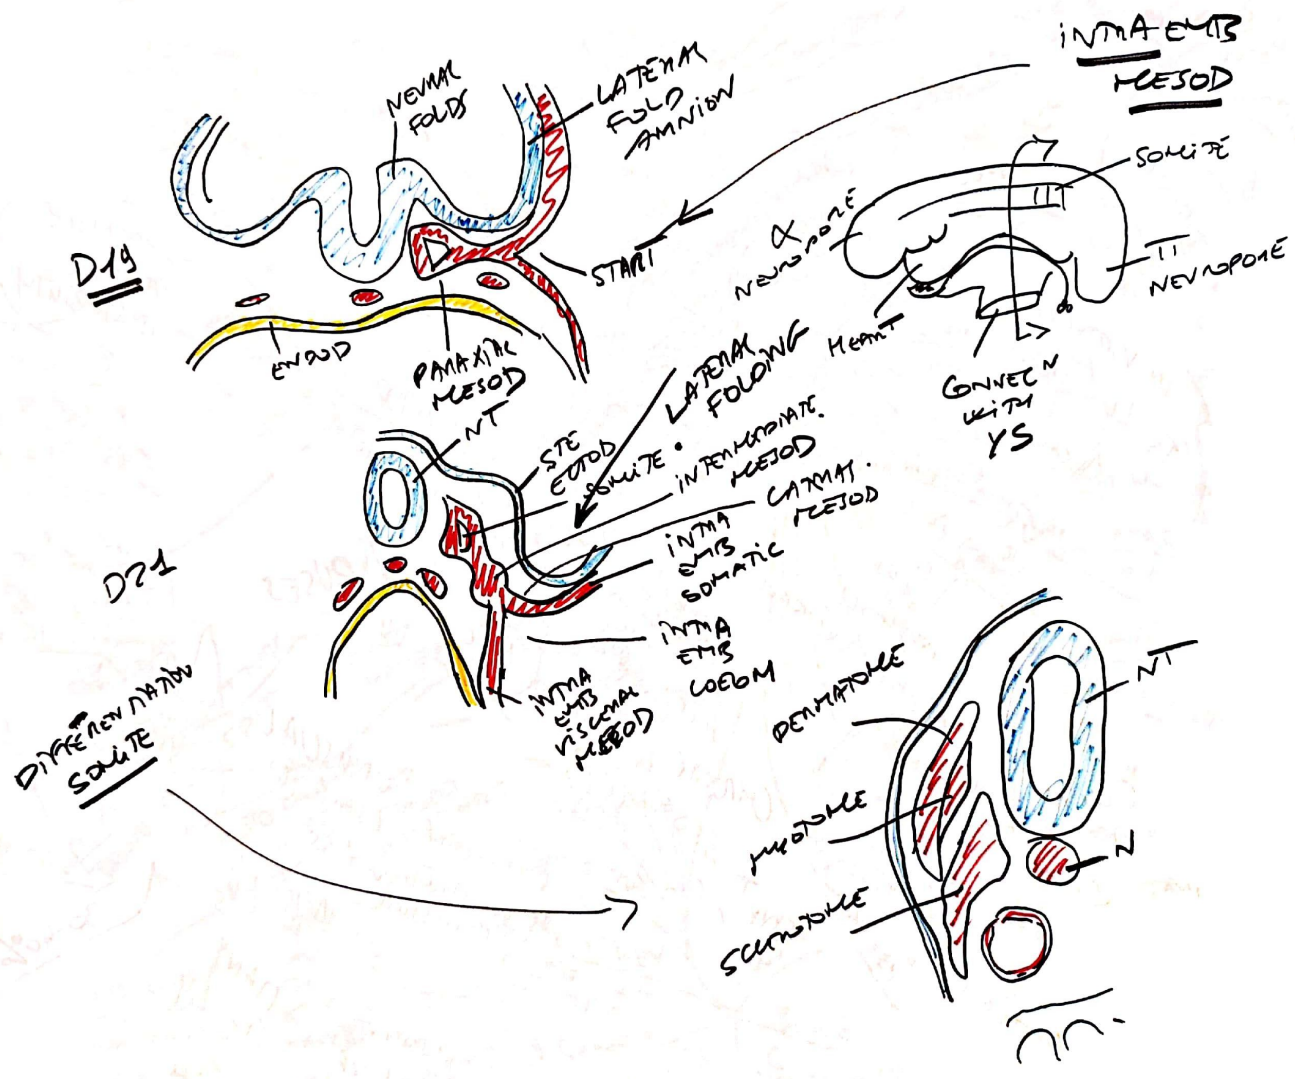 INTRA EMB
MESOD
NEURAL
FOLDS
LATERAL
FOLD
AMNION
D19
START
ENDOD
PARAXIAL
MESOD
SOMITE
α
NEUROPORE
π
NEUROPORE
HEART
CONNEC N
WITH
YS
LATERAL
FOLDING
D21
NT
STE
ECTOD
SOMITE.
INTERMEDIATE.
MESOD
LATERAL.
MESOD
INTRA
EMB
SOMATIC
INTRA
EMB
COELOM
INTRA
EMB
VISCERAL
MESOD
DIFFERENTIATION
SOMITE
DERMATOME
MYOTOME
SCLEROTOME
NT
N